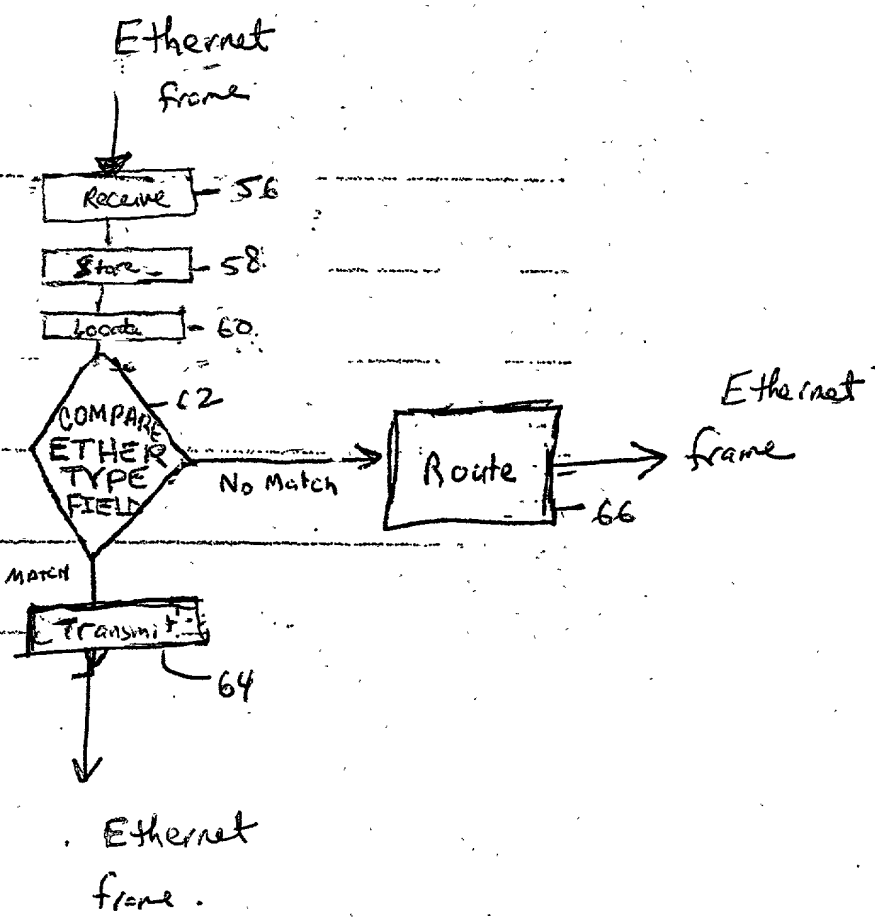 Ethernet
frame
Receive 56
Store 58
Locate 60
62
COMPARE
ETHER
TYPE
FIELD
No Match
Route
66
Ethernet
frame
MATCH
Transmit
64
Ethernet
frame